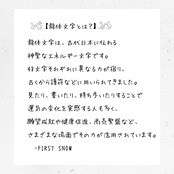 【龍体文字とは？】
龍体文字は、古代日本に伝わる
神聖なエネルギー文字です。
各文字それぞれに異なる力が宿り、
古くから護符などに用いられてきました。
見たり、書いたり、持ち歩いたりすることで
運気の変化を実感する人も多く、
願望成就や健康回復、商売繁盛など、
さまざまな場面でその力が活用されています。
-FIRST SNOW